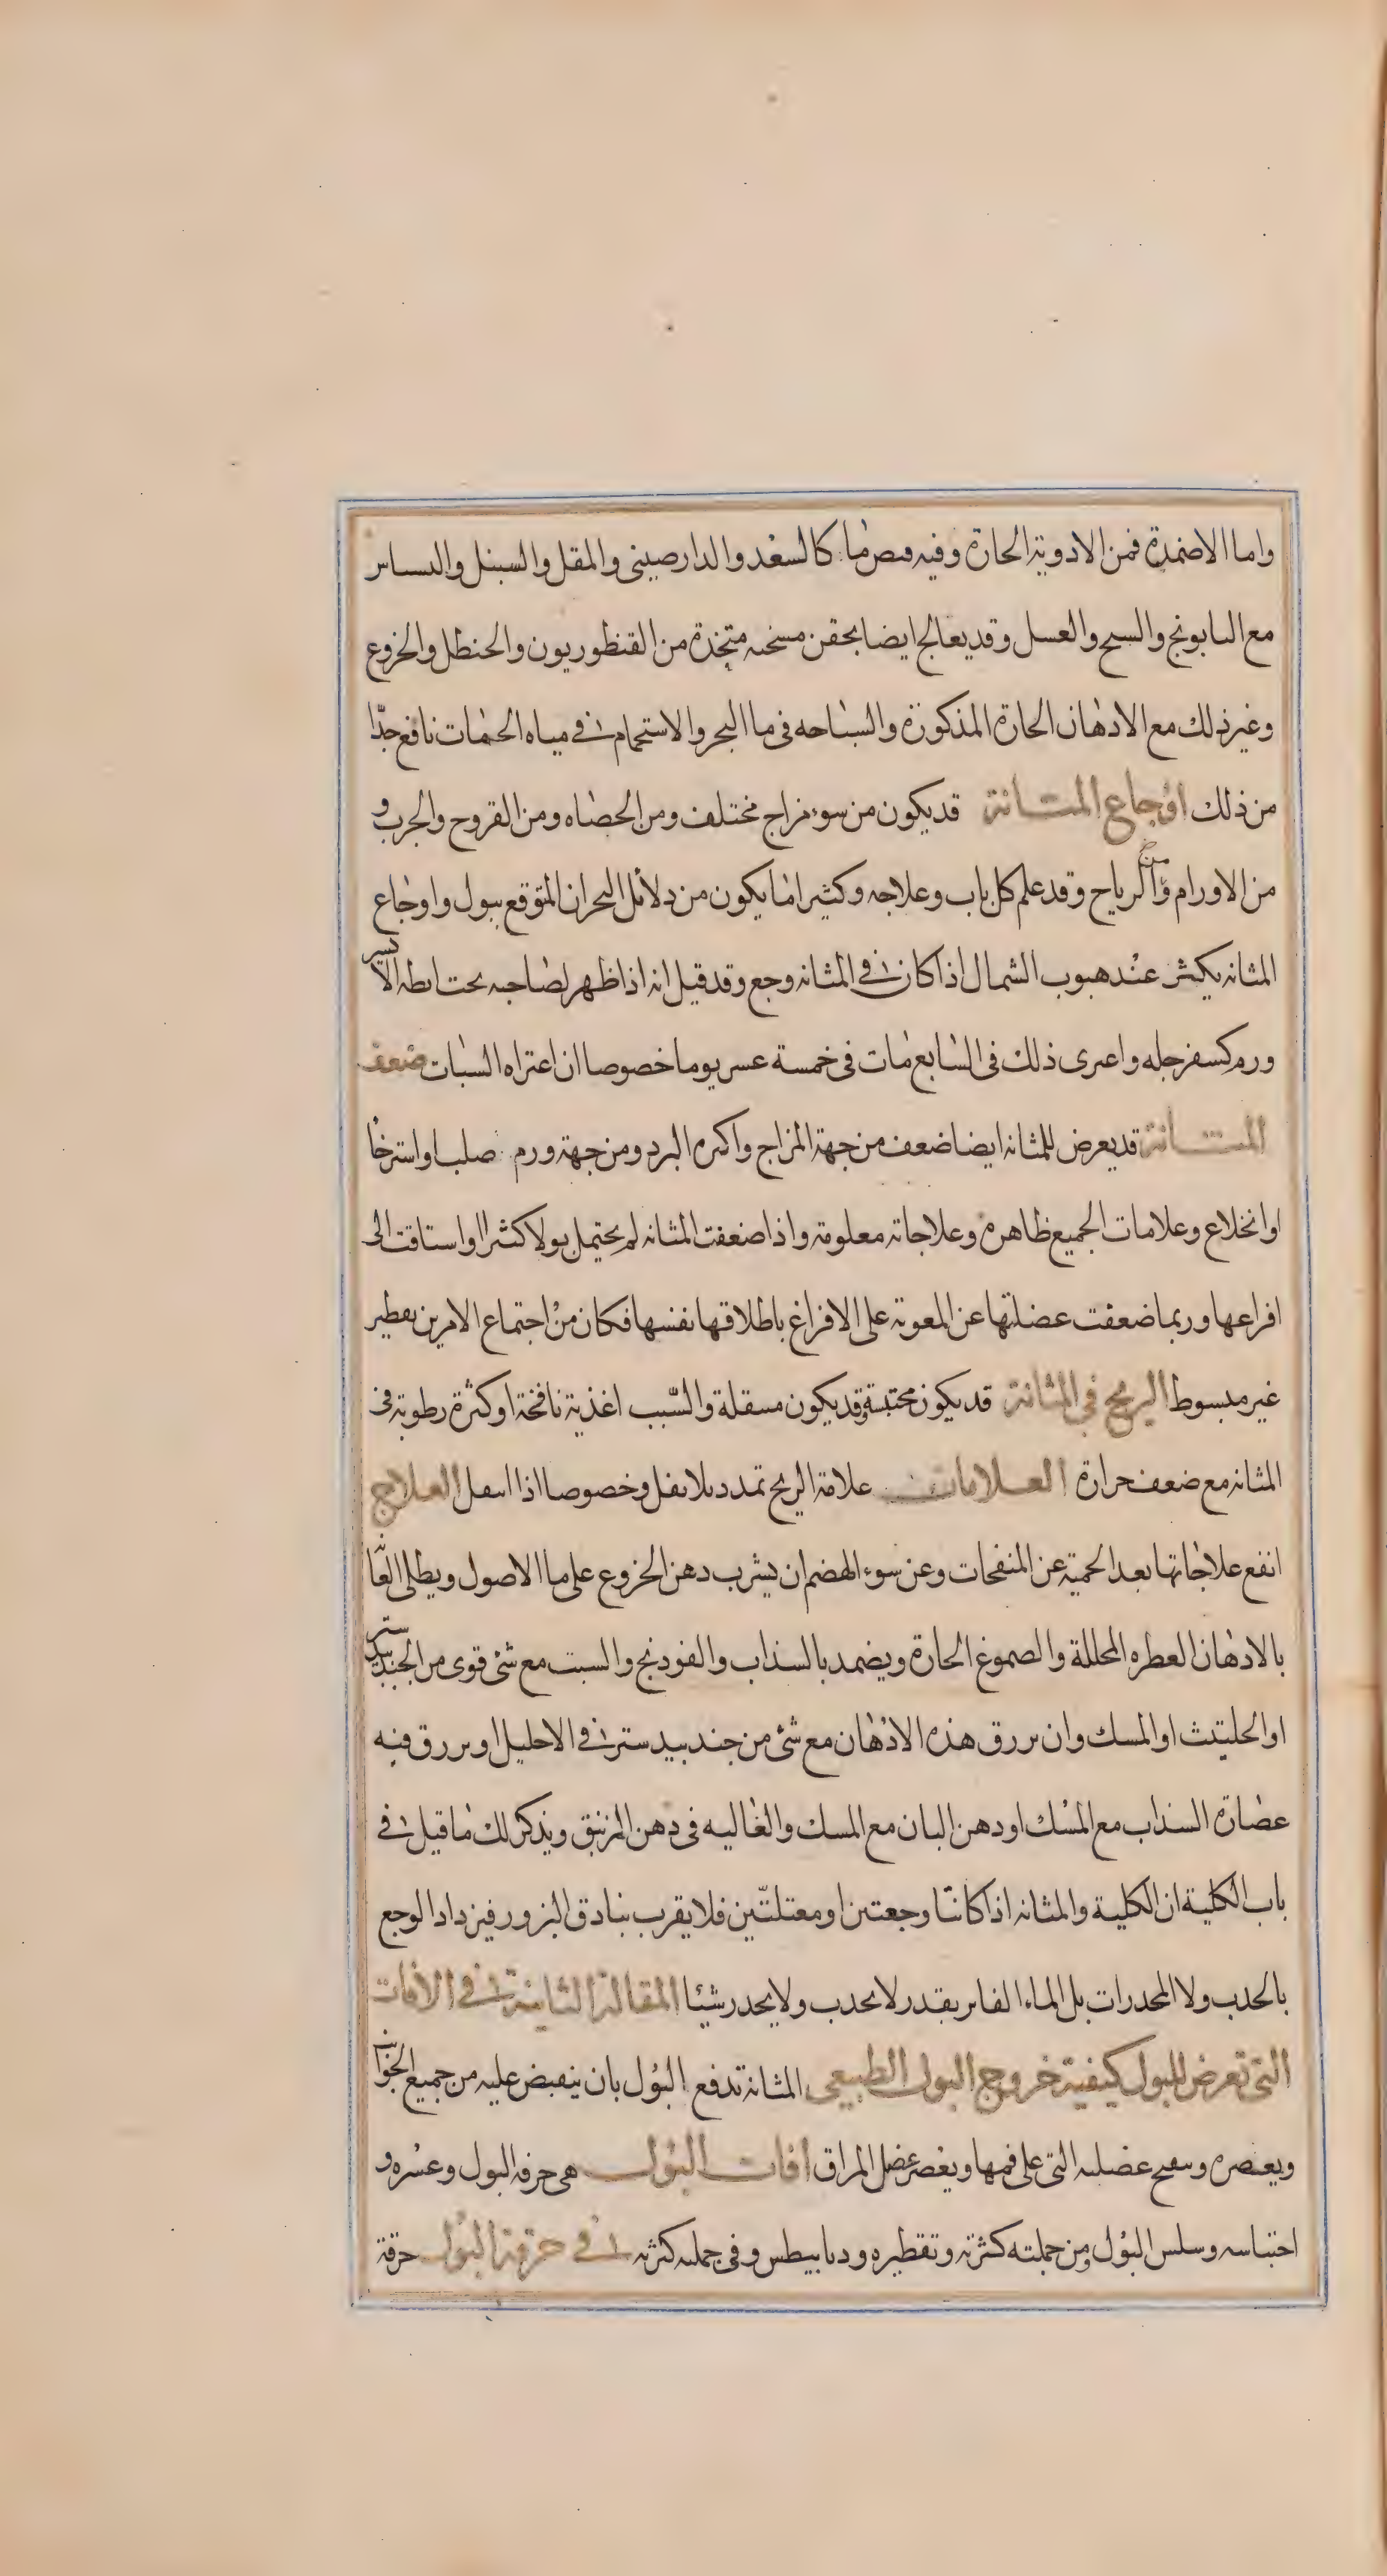 واما الاضمدة فمن الادوية الحارة وفيه قبض ما كالسعد والدارصيني والمقل والسنبل والبسباس
مع البابونج والشيح والعسل وقد يعالج ايضا بحقن مسخنه متخذة من القنطوريون والحنظل والخروع
وغير ذلك مع الادهان الحارة المذكورة والسباحه في ما البحر والاستحمام في مياه الحمات نافع جدّا
من ذلك اوجاع المثانة قد يكون من سوء مزاج مختلف ومن الحصاه ومن القروح والجرب و
من الاورام ومن الرياح وقد علم كل باب وعلاجه وكثيرا ما يكون من دلائل البحران المتوقع ببول واوجاع
المثانه يكثر عند هبوب الشمال اذا كان في المثانه وجع وقد قيل انه اذا ظهر لصاحبه تحت ابطه الايسر
ورم كسفرجله واعترى ذلك في السابع مات في خمسة عشر يوما خصوصا ان اعتراه السبات ضعف
المثانة قد يعرض للمثانه ايضا ضعف من جهة المزاج واكثره البرد ومن جهة ورم صلب او استرخا
او انخلاع وعلامات الجميع ظاهرة وعلاجاته معلومة واذا ضعفت المثانه لم يحتمل بولا كثيرا واشتاقت الى
افراغها وربما ضعفت عضلتها عن المعونة على الافراغ باطلاقها نفسها فكان من اجتماع الامرين تقطير
غير مبسوط الريح في المثانة قد يكون محتبسة وقد يكون منتقلة والسّبب اغذية نافخة او كثرة رطوبة في
المثانه مع ضعف حرارة العلامات علامة الريح تمدد بلا ثقل وخصوصا اذا انتقل العلاج
انفع علاجاتها بعد الحمية عن المنفخات وعن سوء الهضم ان يشرب دهن الخروع على ما الاصول ويطلى العانة
بالادهان العطره المحللة والصموغ الحارة ويضمد بالسذاب والفودنج والشبت مع شئ قوى من الجندبيدستر
او الحلتيت او المسك وان يزرق هذه الادهان مع شئ من جندبيدستر في الاحليل او يزرق فيه
عصارة السذاب مع المسك او دهن البان مع المسك والغاليه في دهن الزنبق ويذكر لك ما قيل في
باب الكلية ان الكلية والمثانه اذا كانتا وجعتين او معتلتين فلا يقرب بنادق البزور فيزداد الوجع
بالجذب ولا المخدرات بل الماء الفاتر بقدر لا يجذب ولا يحدر شيئا المقالة الثانية في الافات
التى تعرض للبول كيفية خروج البول الطبيعى المثانة تدفع البول بان ينقبض عليه من جميع الجوانب
ويعصره وينفتح عضلته التى على فمها ويعصر عضل المراق افات البول هى حرقة البول وعسره و
احتباسه وسلس البول ومن جملته كثرته وتقطيره وديابيطس وفى جملته كثرته في حرقة البول حرقة